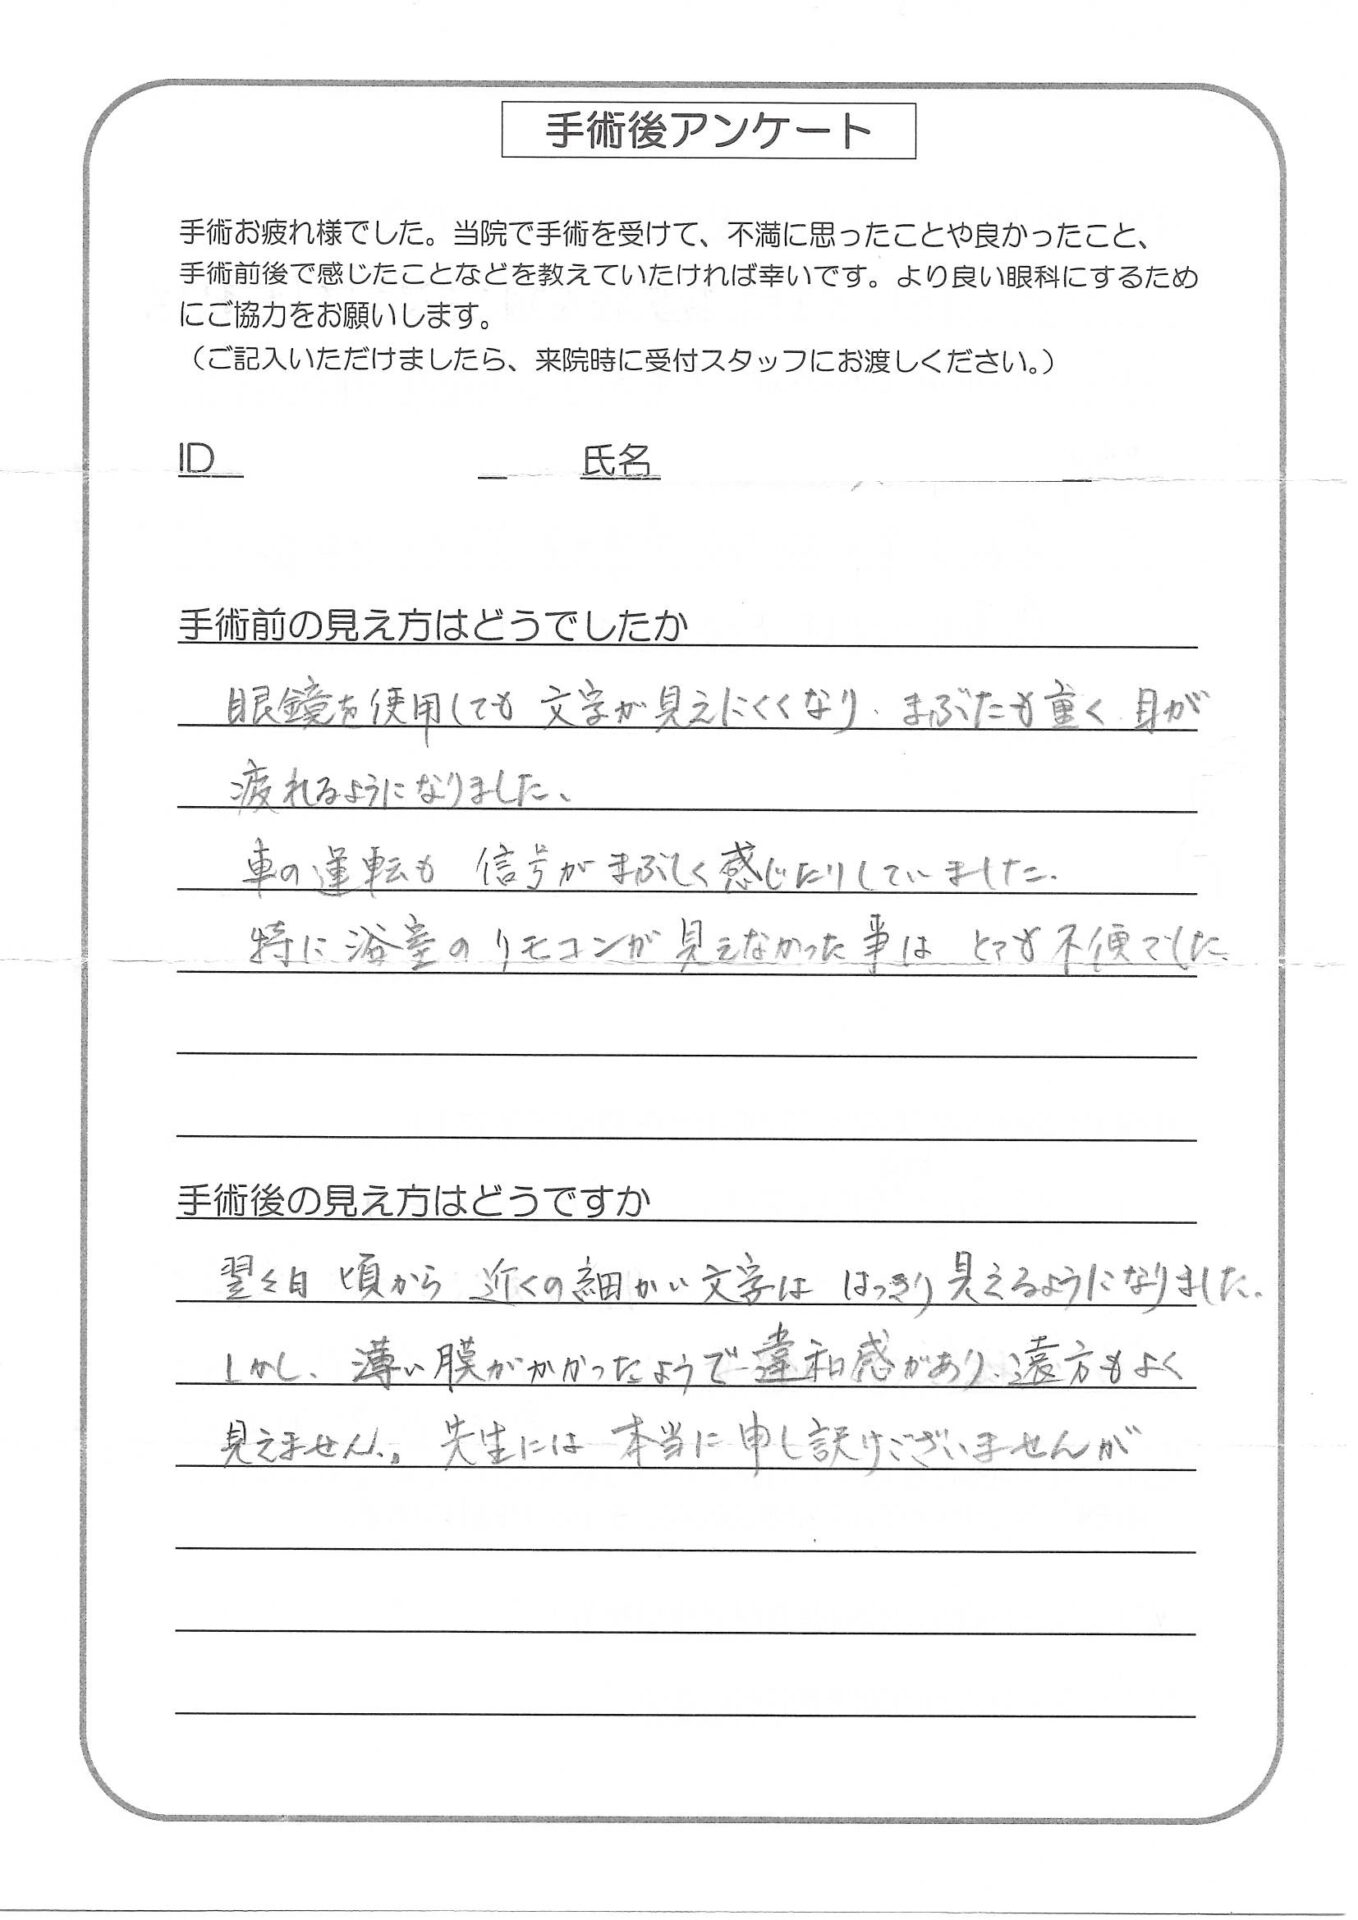 手術後アンケート
手術お疲れ様でした。当院で手術を受けて、不満に思ったことや良かったこと、
手術前後で感じたことなどを教えていただければ幸いです。より良い眼科にするため
にご協力をお願いします。
（ご記入いただけましたら、来院時に受付スタッフにお渡しください。）
ID 氏名
手術前の見え方はどうでしたか
眼鏡を使用しても 文字が見えにくくなり、まぶたも重く 目が
疲れるようになりました、
車の運転も 信号がまぶしく感じたりしていました.
特に浴室のリモコンが見えなかった事は とても不便でした.
手術後の見え方はどうですか
翌々日頃から 近くの細かい文字は はっきり見えるようになりました.
しかし、薄い膜がかかったようで違和感があり、遠方もよく
見えません。先生には 本当に申し訳けございませんが